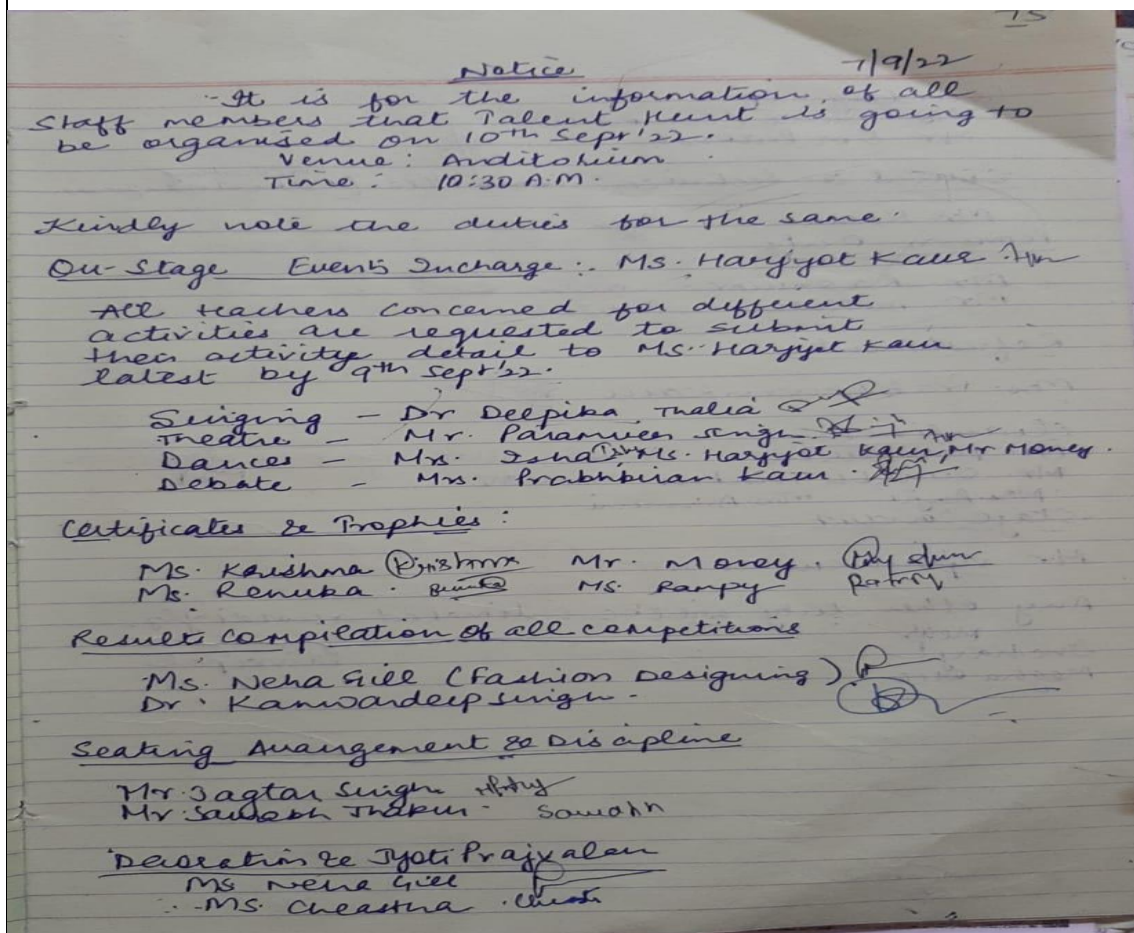 15
Notice 7/9/22
It is for the information of all
staff members that Talent Hunt is going to
be organised on 10th Sept'22.
Venue: Auditorium
Time: 10:30 A.M.
Kindly note the duties for the same.
On-Stage Events Incharge:- Ms. Harjyot Kaur
All teachers concerned for different
activities are requested to submit
their activity detail to Ms. Harjyot Kaur
latest by 9th Sept'22.
Singing - Dr Deepika Thalia
Theatre - Mr. Paramveer Singh
Dances - Mrs. Isha, Ms. Harjyot Kaur, Mr Money.
Debate - Mrs. Prabhkiran Kaur
Certificates & Trophies:
Ms. Karishma Krishma Mr. Money.
Ms. Renuka. Ms. Rampy
Result compilation of all competitions
Ms. Neha Gill (Fashion Designing)
Dr. Kanwardeep Singh.
Seating Arrangement & Discipline
Mr. Jagtar Singh
Mr. Sawabh Thakur
Decoration & Jyoti Prajvalan
Ms Neha Gill
Ms. Cheastha